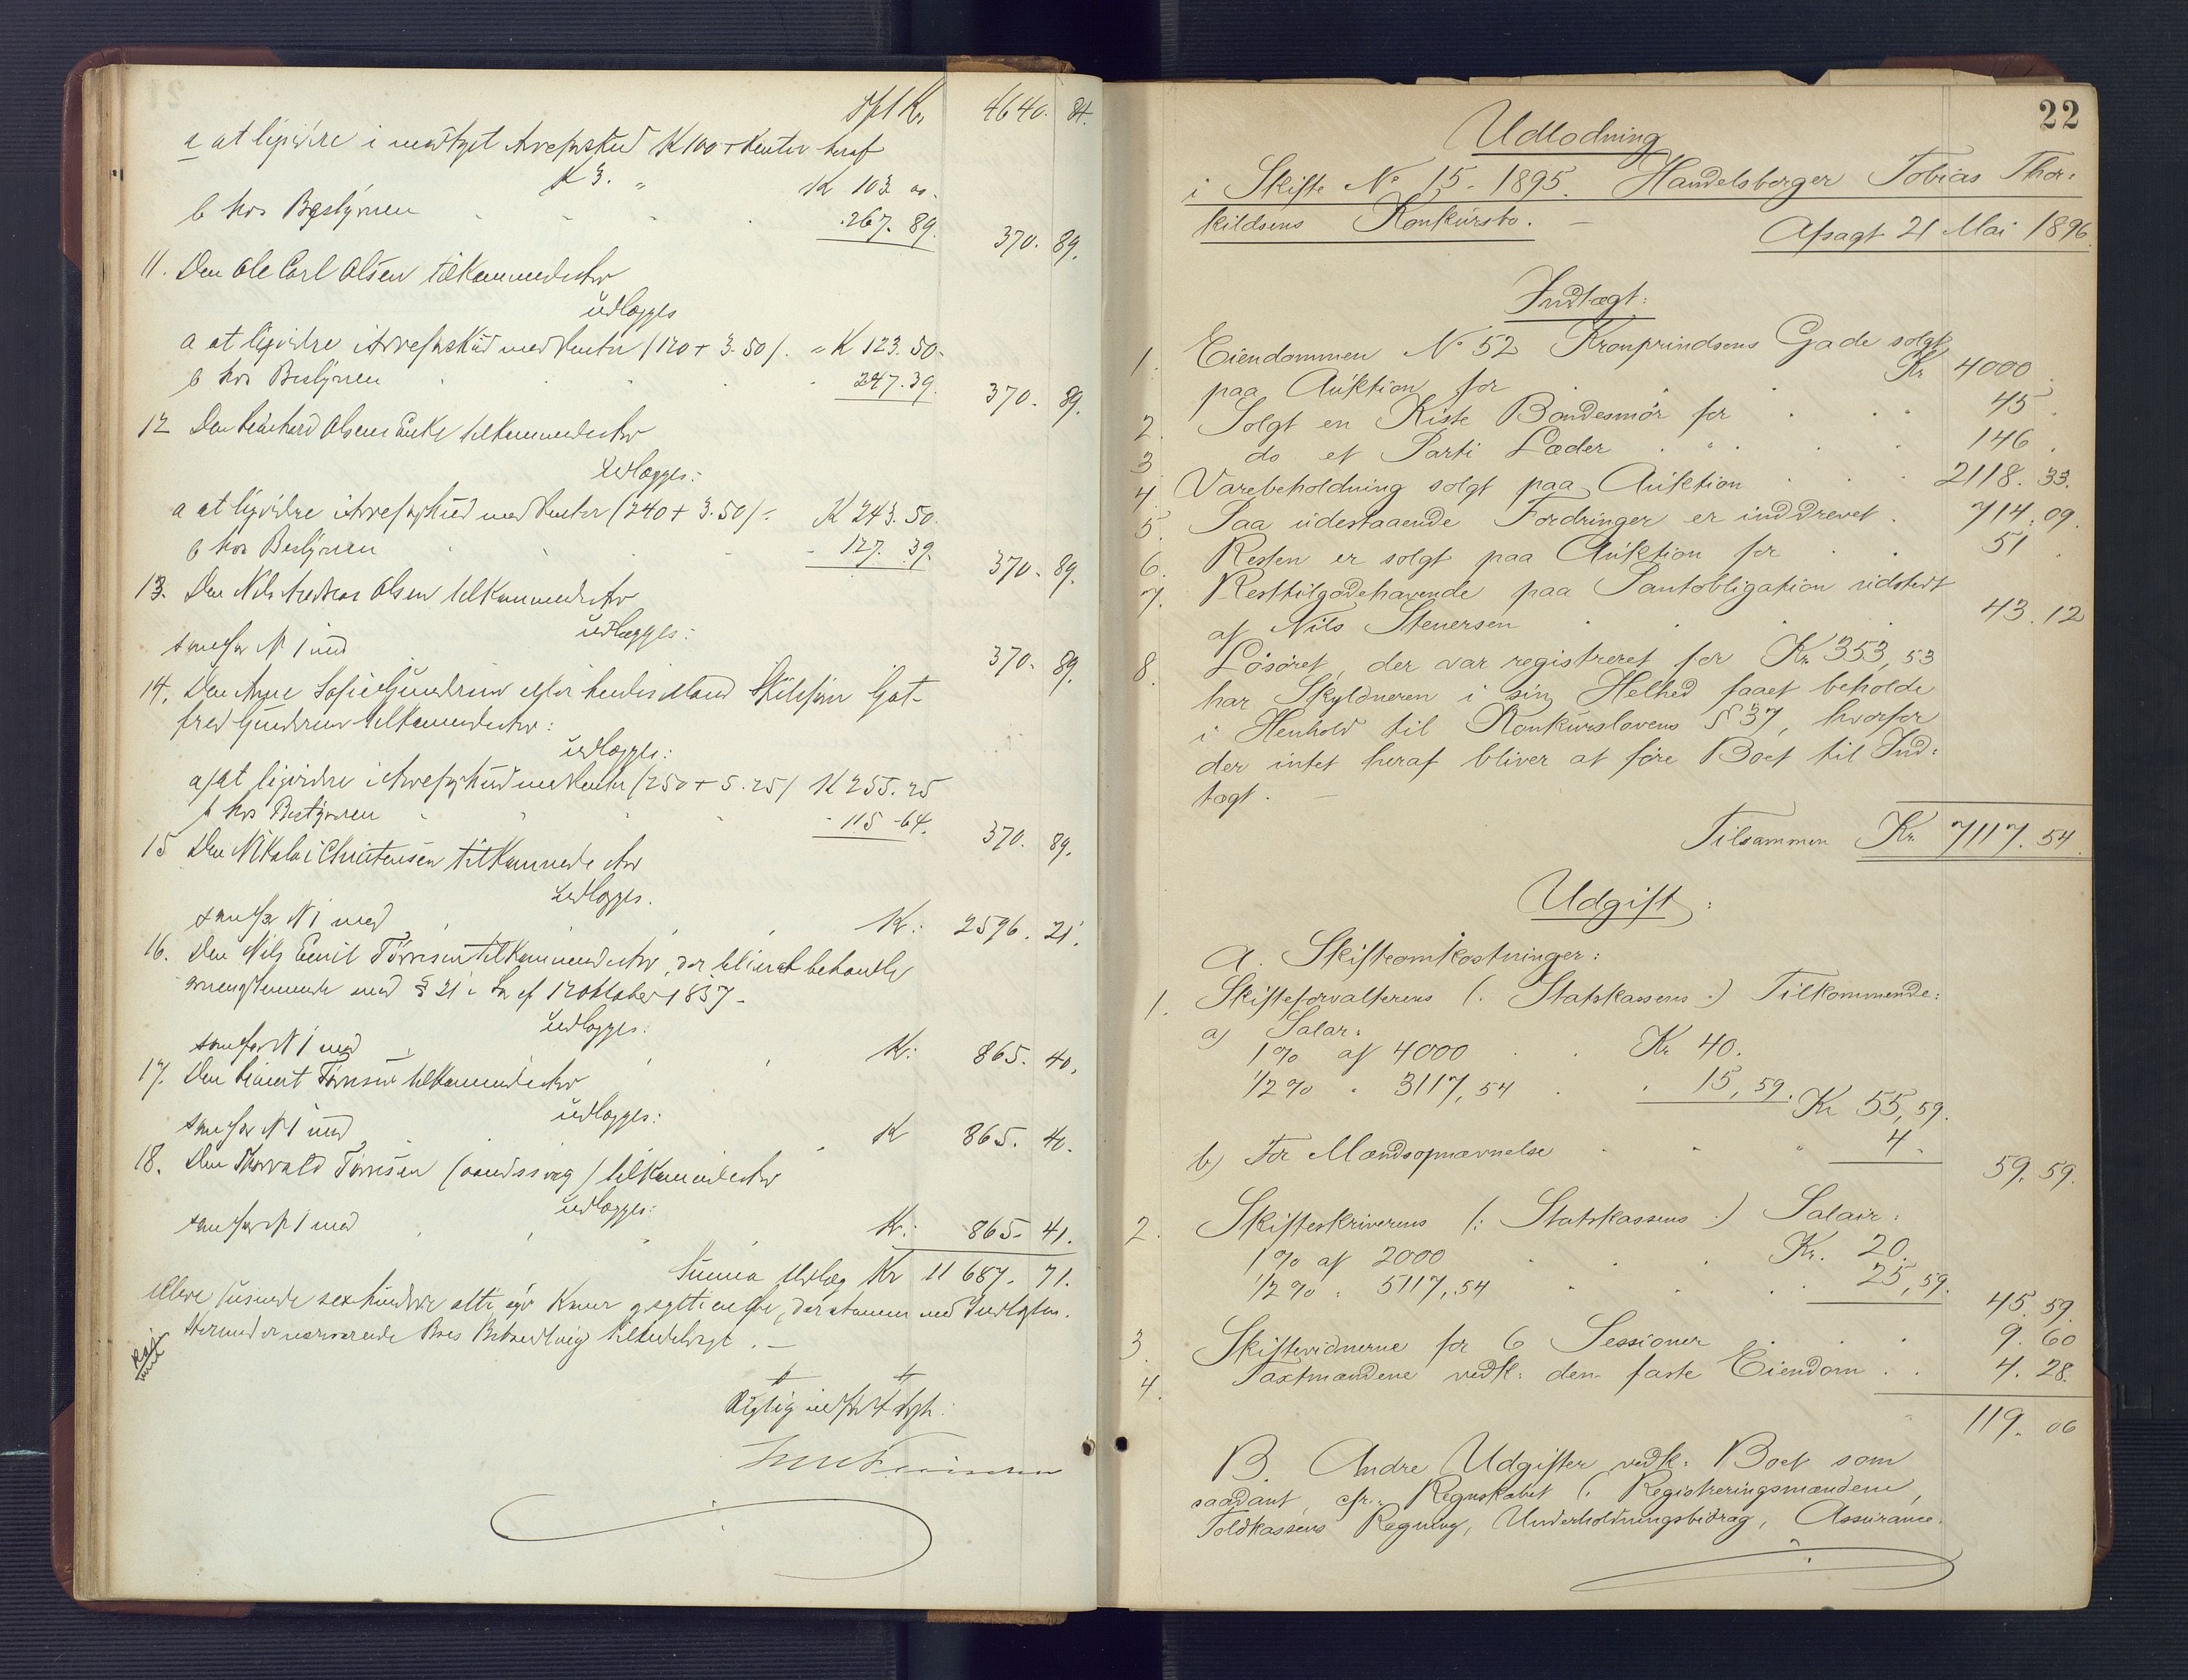 Kr 4640. 84.
a at liqvidre i modtaget Arveforskud K 100 + Renter heraf
K 3. " K 103 00.
b hos Bestyreren 267. 89. 370. 89.
11. Den Ole Carl Olsen tilkommende Arv
udlægges
a at liqvidre i Arveforskud med Renter (120 + 3.50). " K 123. 50.
b hos Bestyreren 247. 39. 370. 89.
12 Den Olsens Enke tilkommende Arv
Udlægges:
a at liqvidre i Arveforskud med Renter (240 + 3.50) = K 243. 50.
b hos Bestyreren 127. 39. 370. 89.
13. Den Nils Andreas Olsen tilkommende Arv
udlægges:
som for N 1 med 370. 89.
14. Den Gundersen eller hendes Mand Got-
fred Gundersen tilkommende Arv:
udlægges:
a) at liqvidre i Arveforskud med Renter (250 + 5.25) K 255. 25
b hos Bestyreren - 115 - 64. 370. 89.
15 Den Nikolai Christensen tilkommende Arv
udlægges.
som for N 1 med K: 2596. 21.
16. Den Nils Emil Tørrisen tilkommende Arv, der bliver at behandle
overensstemmende med § 21 i Lov af 12 Oktober 1857.
udlægges:
som for N 1 med K: 865. 40.
17. Den Tørrisen tilkommende Arv
udlægges:
som for N 1 med K 865. 40.
18. Den Thorvald Tørrisen (sindssvag) tilkommende Arv
udlægges:
som for N 1 med Kr: 865. 41.
Summa Udlæg Kr 11 687. 71.
elleve tusinde sexhundrede otti syv Kroner og sytti en Øre, der stemmer med Indtægten.
Hermed er nærværende Boes Behandling tilendebragt. —
Rigtig indført
22
Udlodning
i Skifte No 15 - 1895. Handelsborger Tobias Thor-
kildsens Konkursbo. — Afsagt 21 Mai 1896.
Indtægt:
1. Eiendommen No 52 Kronprindsens Gade solgt
paa Auktion for Kr 4000.
2. Solgt en Kiste Bondesmør for 45.
3 do et Parti Læder 146.
4 Varebeholdning solgt paa Auktion 2118. 33.
5. Paa udestaaende Fordringer er inddrevet. 714. 09.
6. Resten er solgt paa Auktion for 51.
7. Resttilgodehavende paa Pantobligation udstedt
af Nils Stenersen 43. 12
8. Løsøret, der var registreret for Kr 353,53
har Skyldneren i sin Helhed faaet beholde
i Henhold til Konkurslovens § 37, hvorfor
der intet heraf bliver at føre Boet til Ind-
tægt. —
Tilsammen Kr. 7117. 54.
Udgift:
A. Skifteomkostninger:
1. Skifteforvalterens (: Statskassens :) Tilkommende:
a) Salar:
1 % af 4000 Kr 40.
1/2 % " 3117,54 15,59. Kr 55,59.
b) For Mændsopnævnelse " 4. 59. 59.
2. Skifteskriverens (: Statskassens :) Salair:
1 % af 2000 Kr. 20.
1/2 % " 5117,54 25,59. 45. 59.
3. Skiftevidnerne for 6 Sessioner 9. 60
4. Taxtmændene vedk: den faste Eiendom 4. 28.
119. 06
B. Andre Udgifter vedk. Boet som
saadant, cfr. Regnskabet (: Registreringsmændene,
Toldkassens Regning, Underholdningsbidrag, Assurance-